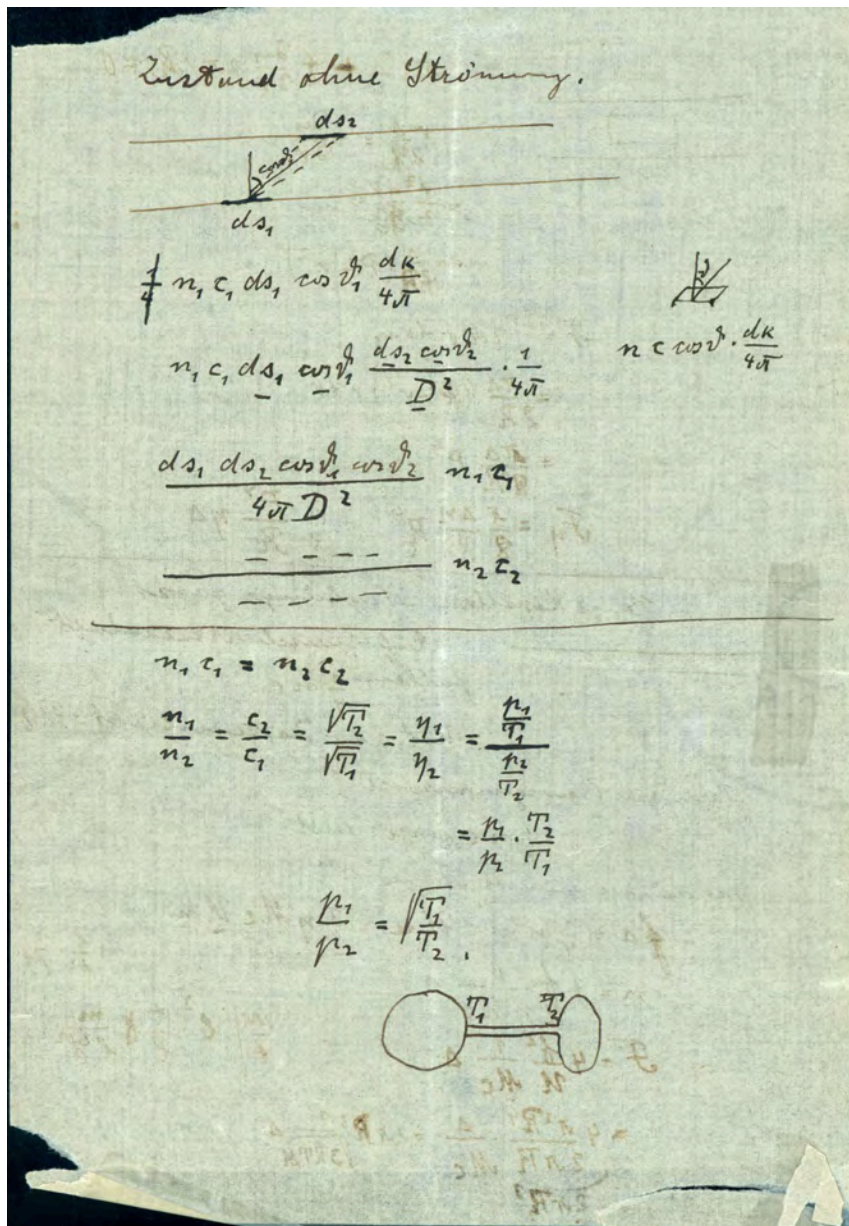 Zustand ohne Strömung.
ds₂
cos ϑ
ds₁
1/4 n₁ c₁ ds₁ cos ϑ₁ dκ/4π
ϑ
n c cos ϑ · dκ/4π
n₁ c₁ ds₁ cos ϑ₁ ds₂ cos ϑ₂/D² · 1/4π
ds₁ ds₂ cos ϑ₁ cos ϑ₂/4π D² n₁ c₁
— — — — n₂ c₂
— — —
n₁ c₁ = n₂ c₂
n₁/n₂ = c₂/c₁ = √T₂/√T₁ = η₁/η₂ = (p₁/T₁)/(p₂/T₂)
= p₁/p₂ · T₂/T₁
p₁/p₂ = √(T₁/T₂).
T₁ T₂